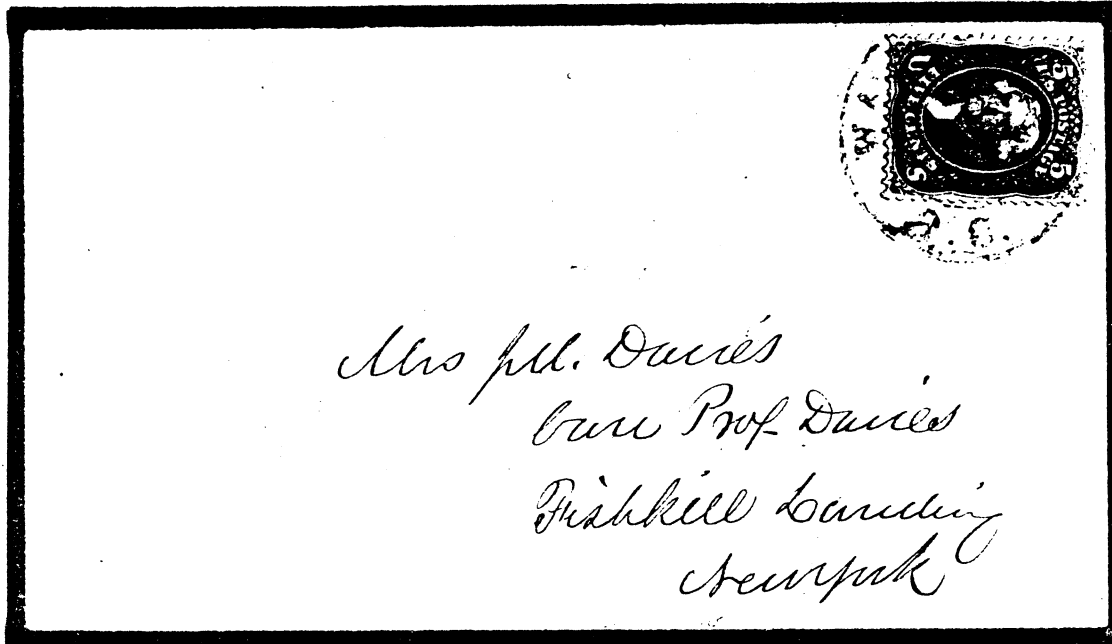 U.S. POSTAGE
5 5
D.C.
Mrs J.M. Davies
Care Prof Davies
Fishkill Landing
New York